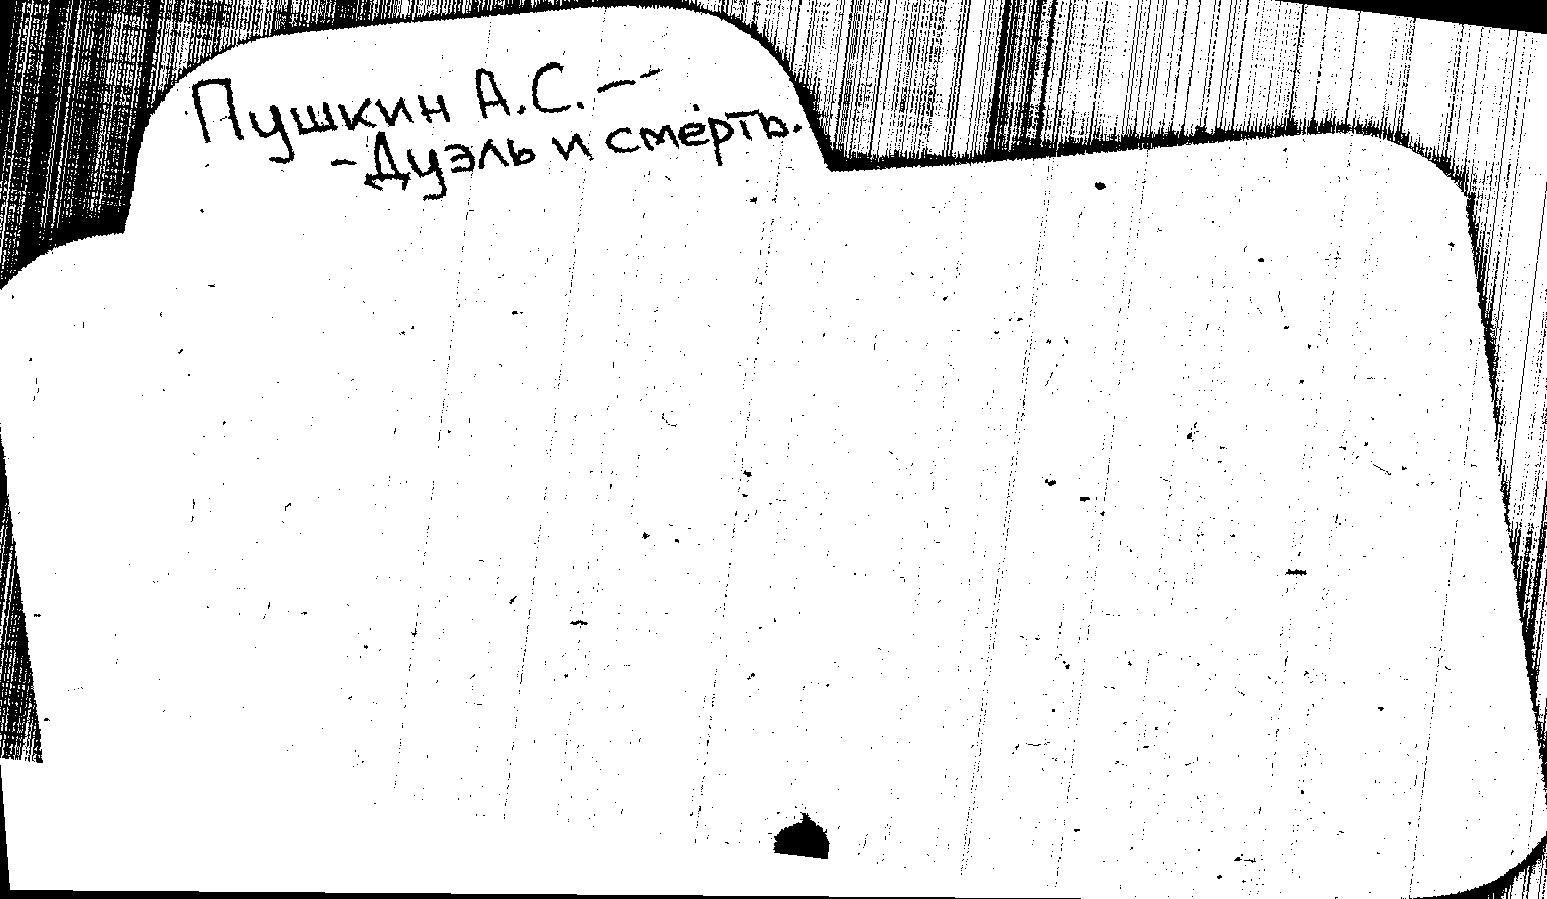 Пушкин А.С. —
- Дуэль и смерть.